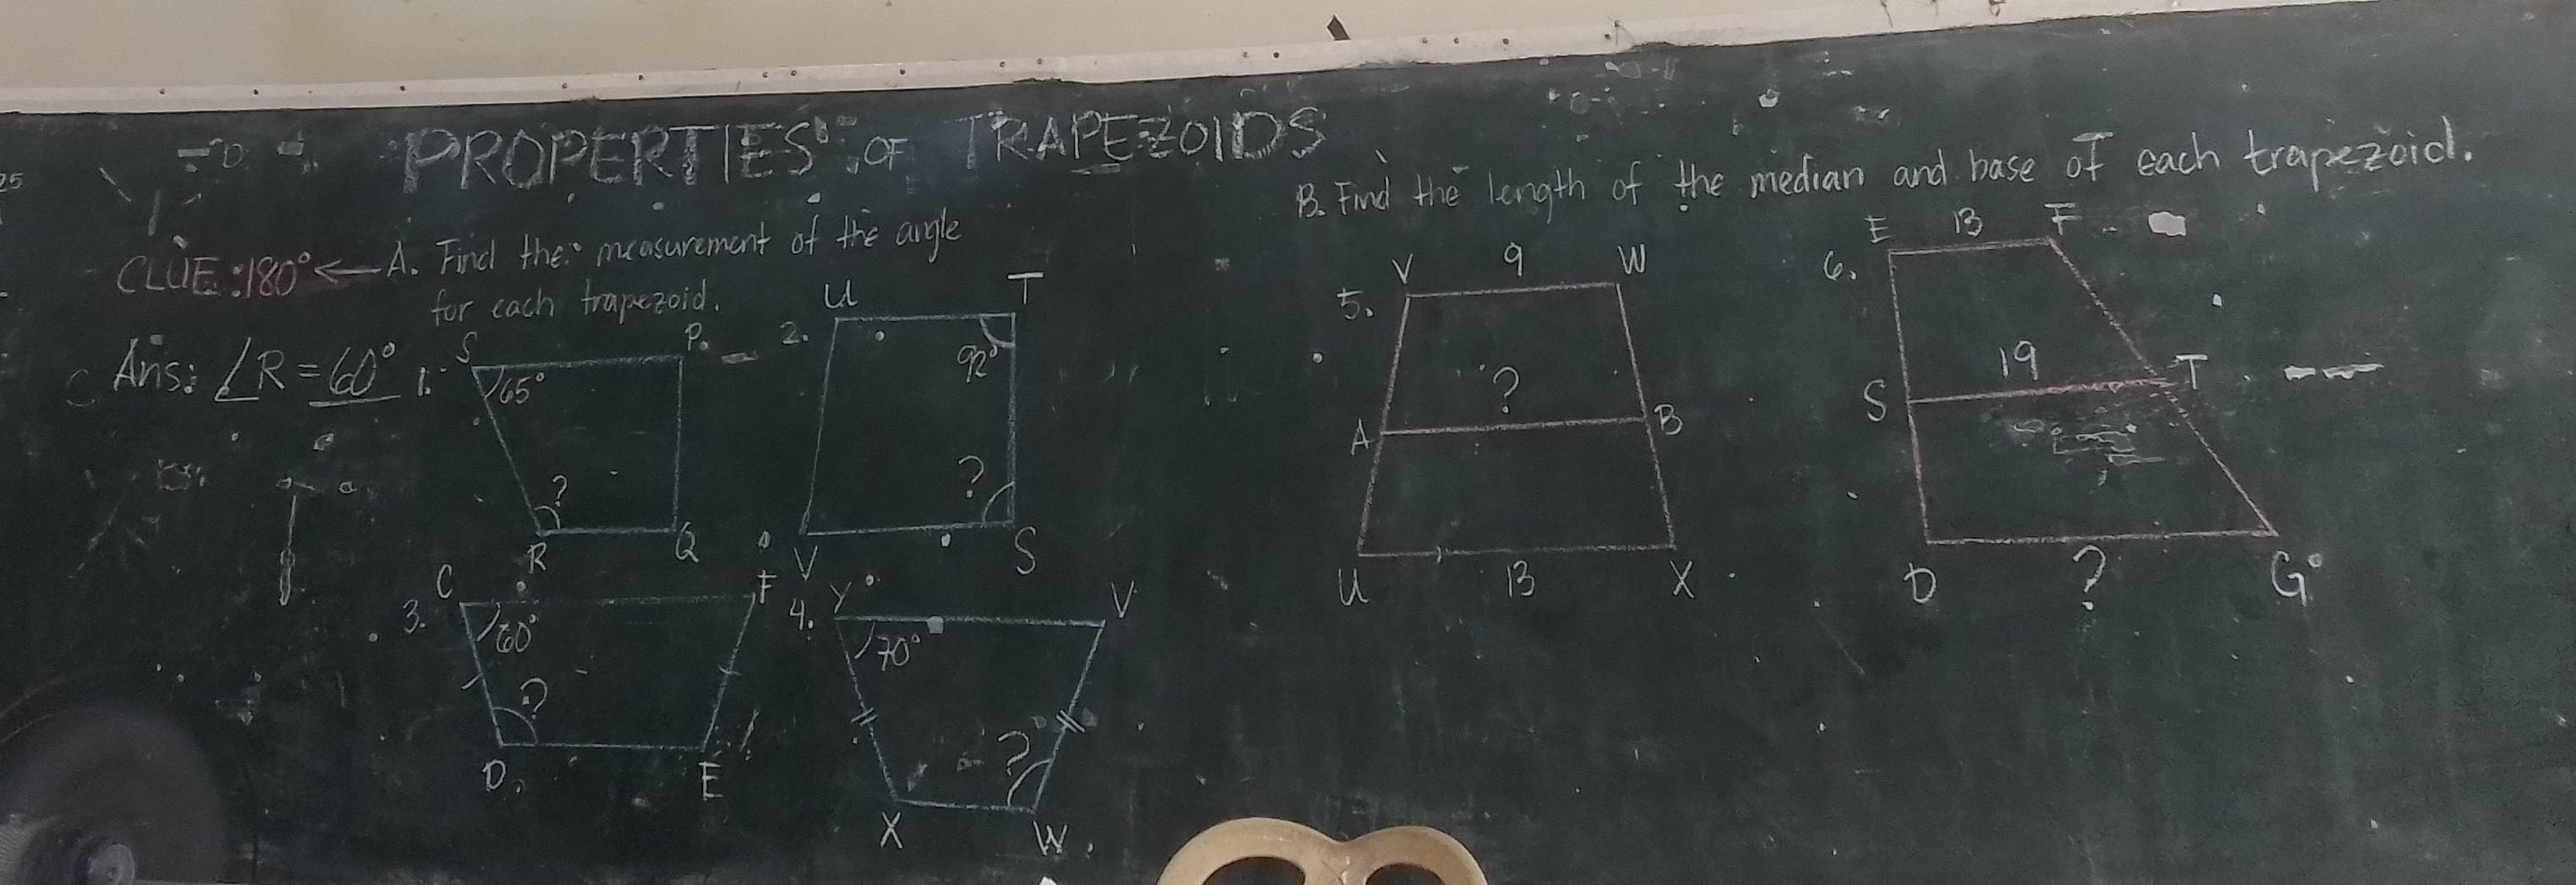 PROPERTIES OF TRAPEZOIDS
CLUE:180° ← A. Find the measurement of the angle
for each trapezoid.
Ans: ∠R = 60°
1.
S
P
65°
?
R
Q
2.
U
T
92°
?
V
S
3.
C
F
60°
?
D
E
4.
Y
V
70°
?
X
W
B. Find the length of the median and base of each trapezoid.
5.
V
9
W
?
A
B
U
13
X
6.
E
13
F
19
S
T
D
?
G